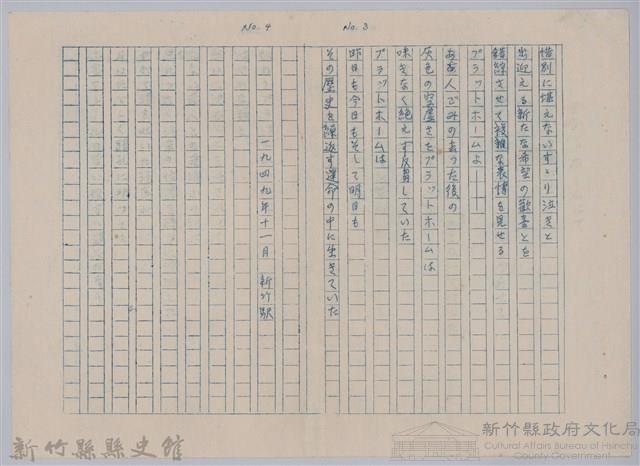 No. 3
惜別に堪えないすゝり泣きと
出迎える新たな希望の歓喜とを
錯綜させて複雑な表情を見せる
プラットホームよ――
あゝ人ごみの去った後の
灰色の空虚さをプラットホームは
味きなく絶えず反芻していた
プラットホームは
昨日も今日もそして明日も
その歴史を繰返す運命の中に生きていた
No. 4
一九四九年十一月 新竹駅
新竹縣縣史館
新竹縣政府文化局
Cultural Affairs Bureau of Hsinchu
County Government